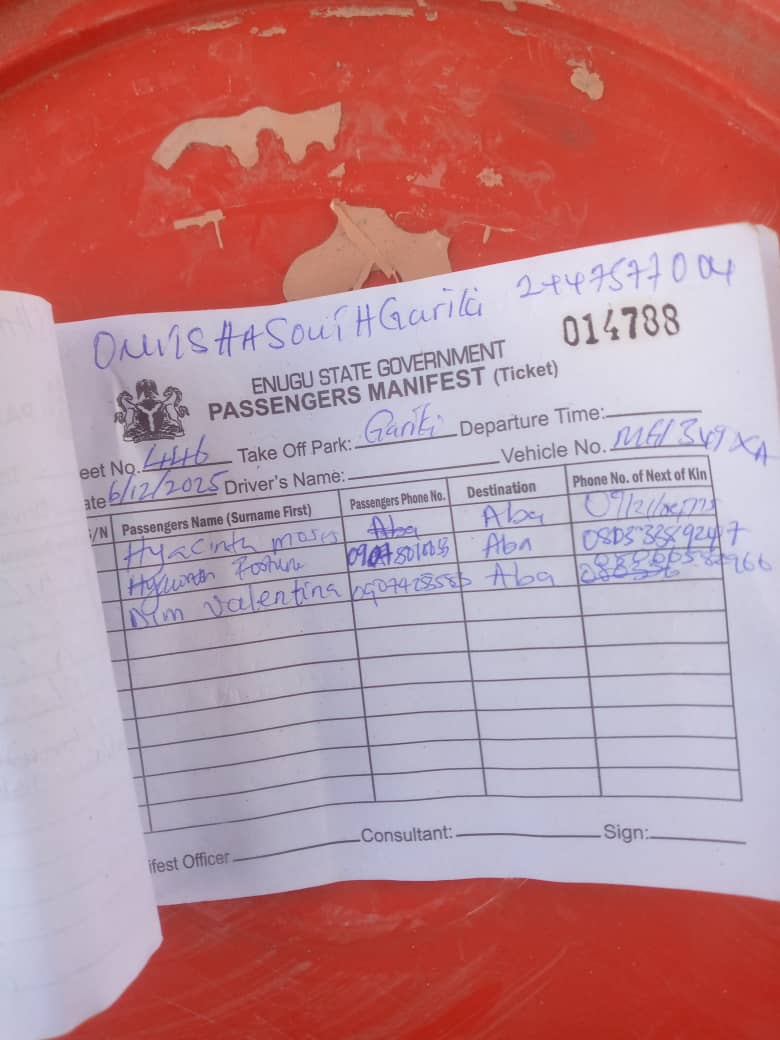 OMISHA SOUTH Gariki 2447577004
ENUGU STATE GOVERNMENT 014788
PASSENGERS MANIFEST (Ticket)
eet No. 446 Take Off Park: Gariki Departure Time:
ate 6/12/2025 Driver's Name: Vehicle No.
S/N Passengers Name (Surname First) Passengers Phone No. Destination Phone No. of Next of Kin
Hyacinth Moses Aba Aba
Hyacinth Fortune Aba
Nim Valentina Aba
ifest Officer Consultant: Sign: